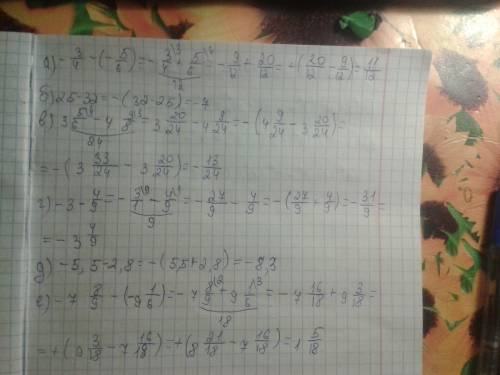 а) -3/4 - (-5/6) = -3/4^3 + 5/6^2 = -9/12 + 20/12 = +(20/12 - 9/12) = 11/12
12
б) 25-32 = -(32-25) = -7
в) 3 5/6^4 - 4 3/8^3 = 3 20/24 - 4 9/24 = -(4 9/24 - 3 20/24) =
24
= -(3 33/24 - 3 20/24) = -13/24
г) -3 - 4/9 = -3/1^9 - 4/9^1 = -27/9 - 4/9 = -(27/9 + 4/9) = -31/9 =
9
= -3 4/9
д) -5,5-2,8 = -(5,5+2,8) = -8,3
е) -7 8/9 - (-9 1/6) = -7 8/9^2 + 9 1/6^3 = -7 16/18 + 9 3/18 =
18
= +(9 3/18 - 7 16/18) = +(8 21/18 - 7 16/18) = 1 5/18